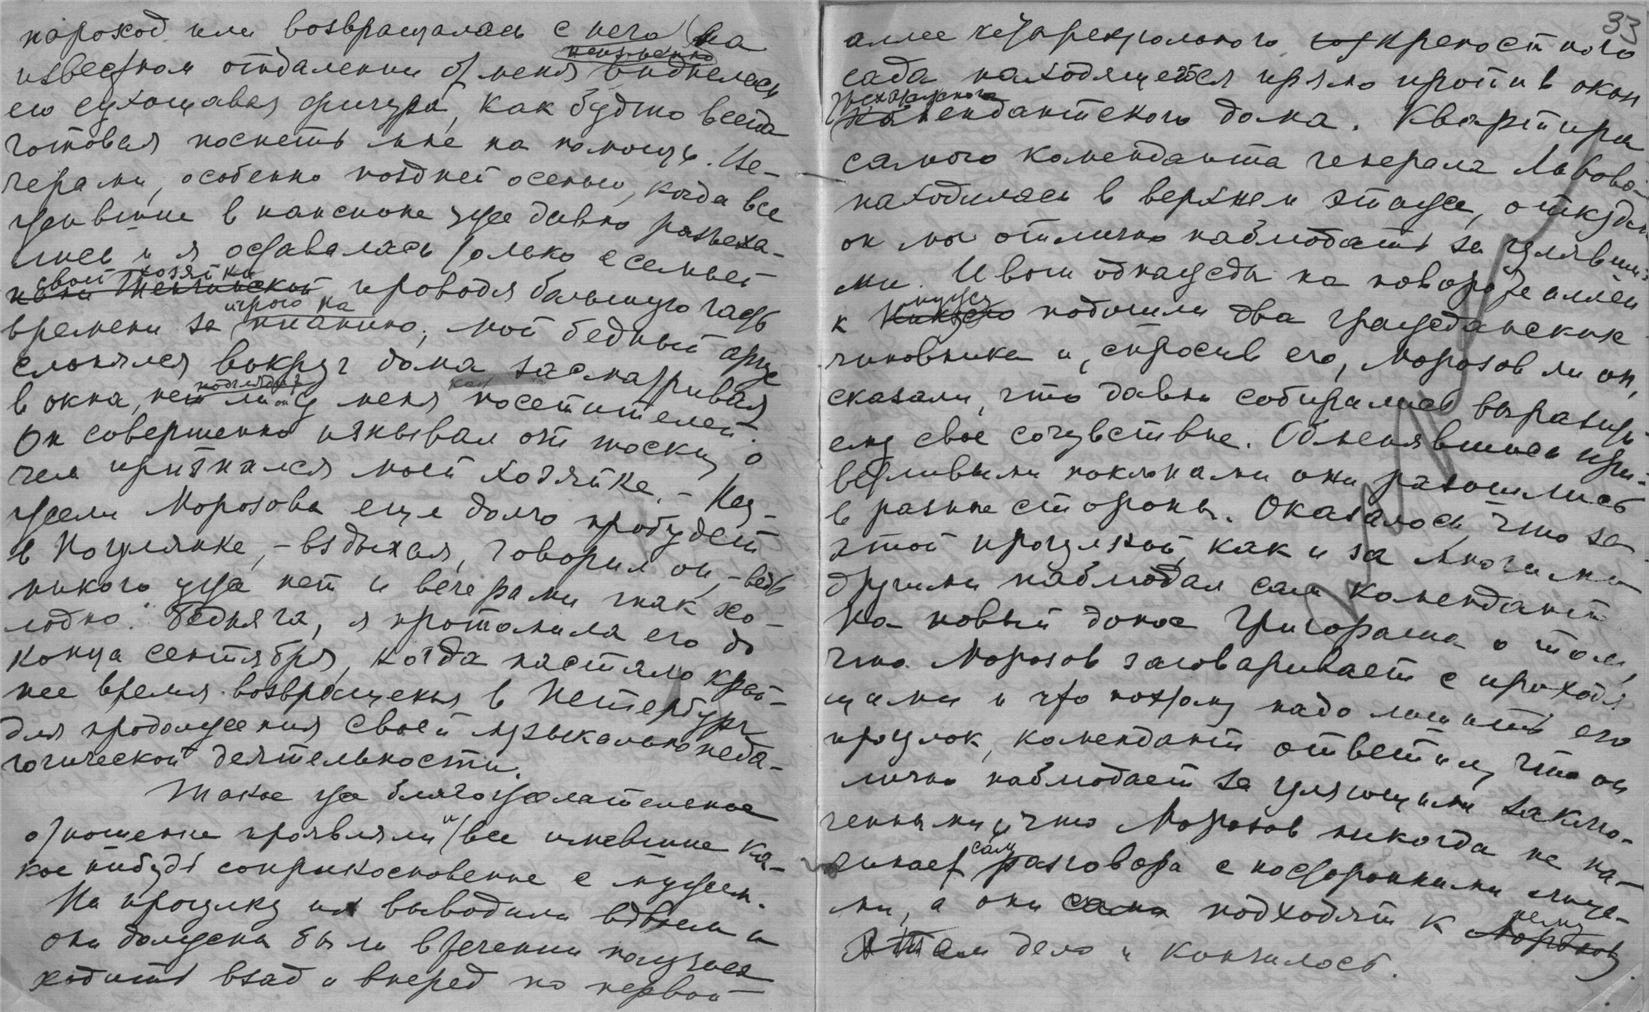 пароход или возвращалась с него на
известном отдалении от меня неизменно виднелась
его сухощавая фигура, как будто всегда
готовая поспеть мне на помощь. Ве-
черами, особенно поздней осенью, когда все
жившие в пансионе уже давно разъеха-
лись и я оставалась только с семьей
своей хозяйки проводя большую часть
времени за игрою на пианино, мой бедный
слонялся вокруг дома засматривая
в окна, нет ли у меня посетителей.
Он совершенно изнывал от тоски, о
чем признался моей хозяйке. – Неу-
жели Морозова еще долго пробудет
в Погулянке, – вздыхая, говорил он, – ведь
никого уже нет и вечерами так хо-
лодно. Бедняга, я протомила его до
конца сентября, когда настало край-
нее время возвращения в Петербург
для продолжения своей музыкально педа-
гогической деятельности.
Такое же благожелательное
отношение проявляли и все имевшие ка-
кое нибудь соприкосновение с мужем.
На прогулку их выводили вдвоем и
они должны были в течении получаса
ходить взад и вперед по первой
33
аллее четырехугольного крепостного
сада находящейся прямо против окон
комендантского дома. Квартира
самого коменданта генерала
находилась в верхнем этаже, откуда
он мог отлично наблюдать за гулявши-
ми. И вот однажды на повороте аллеи
к мужу подошли два гражданских
чиновника и, спросив его, Морозов ли он,
сказали, что давно собирались выразить
ему свое сочувствие. Обменявшись при-
ветливыми поклонами они разошлись
в разные стороны. Оказалось, что за
этой прогулкой, как и за многими
другими наблюдал сам комендант
На новый донос о том,
что Морозов заговаривает с проходя
щими и что поэтому надо лишить его
прогулок, комендант ответил, что он
лично наблюдает за гуляющими заклю-
ченными, что Морозов никогда не на-
чинает сам разговора с посторонними лица-
ми, а они сами подходят к нему
дело и кончилось.